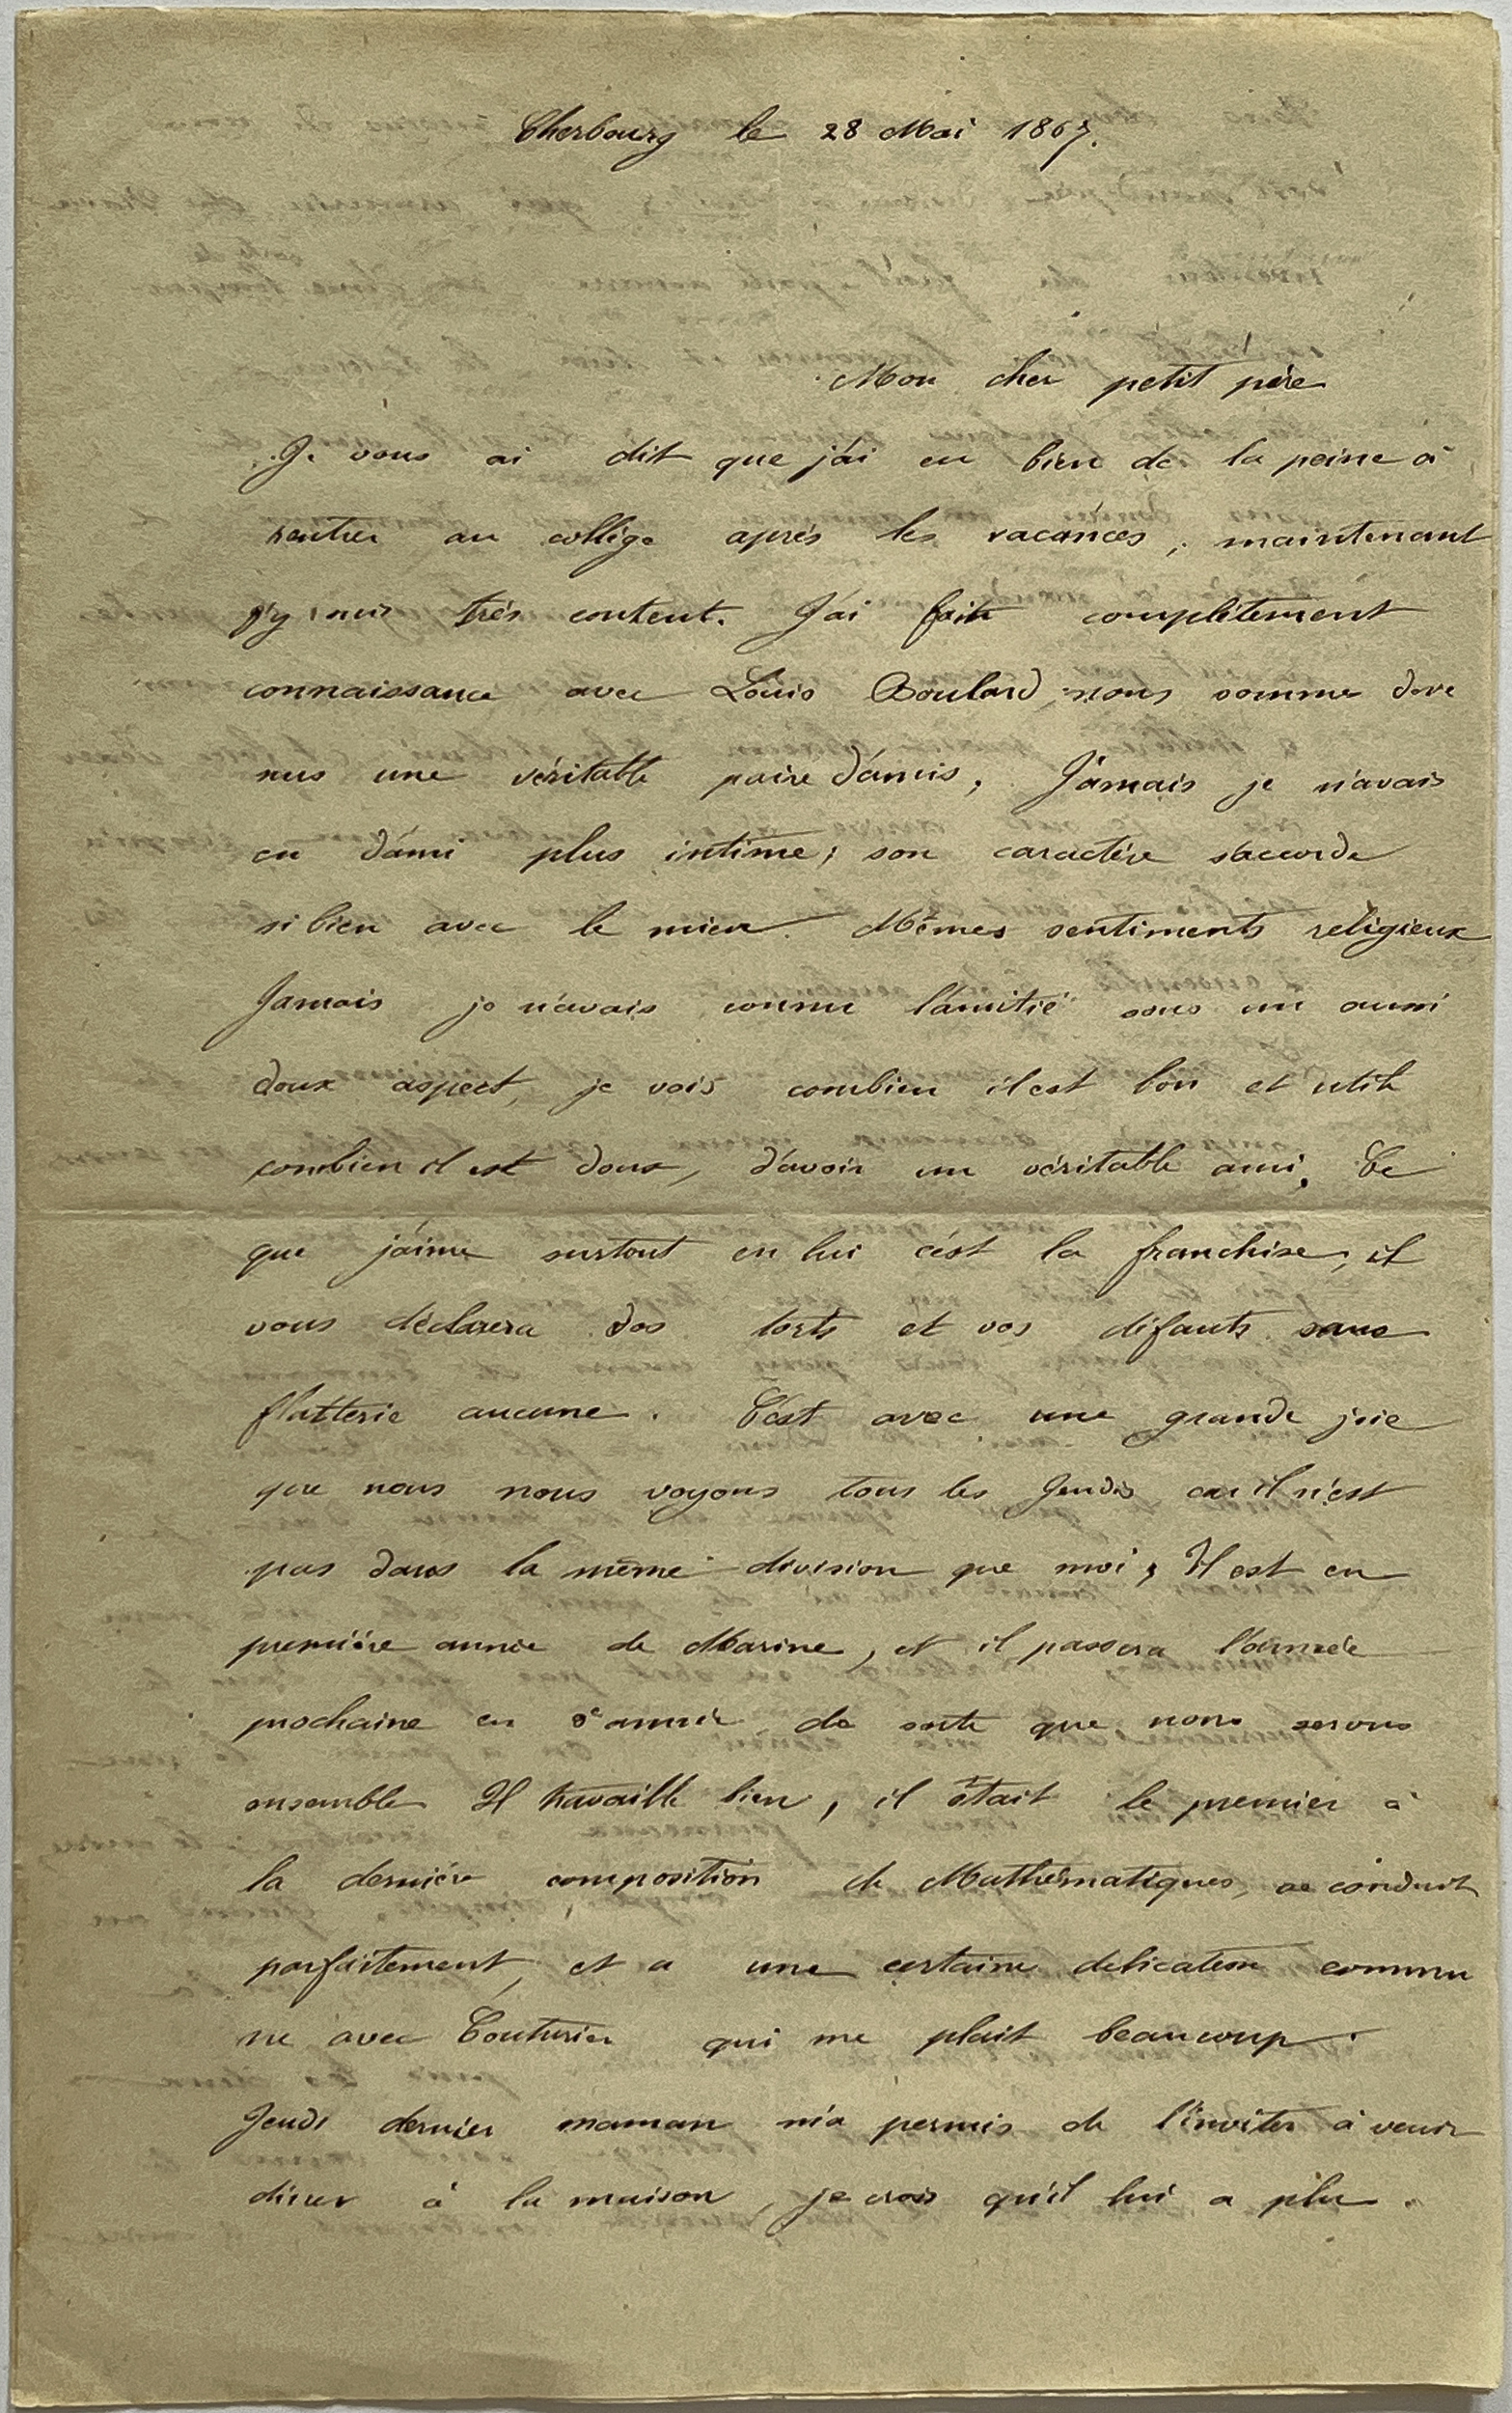 Cherbourg le 28 Mai 1867.
Mon cher petit père
Je vous ai dit que j'ai eu bien de la peine à
rentrer au collège après les vacances, maintenant
j'y suis très content. J'ai fait complètement
connaissance avec Louis Boulard, nous somme deve
nus une véritable paire d'amis, Jamais je n'avais
eu d'ami plus intime; son caractère s'accorde
si bien avec le mien. Mêmes sentiments religieux
Jamais je n'avais connu l'amitié sous un aussi
doux aspect, je vois combien il est bon et utile
combien il est doux, d'avoir un véritable ami, Ce
que j'aime surtout en lui c'est la franchise, il
vous déclarera vos torts et vos défauts sans
flatterie aucune. C'est avec une grande joie
que nous nous voyons tous les Jeudis car il n'est
pas dans la même division que moi, Il est en
première année de Marine, et il passera l'année
prochaine en 2e année de sorte que nous serons
ensemble Il travaille bien, il était le premier à
la dernière composition de Mathématiques, se conduit
parfaitement, et a une certaine délicatesse commu
ne avec Couturier qui me plait beaucoup.
Jeudi dernier maman m'a permis de l'inviter à venir
diner à la maison, je crois qu'il lui a plu.